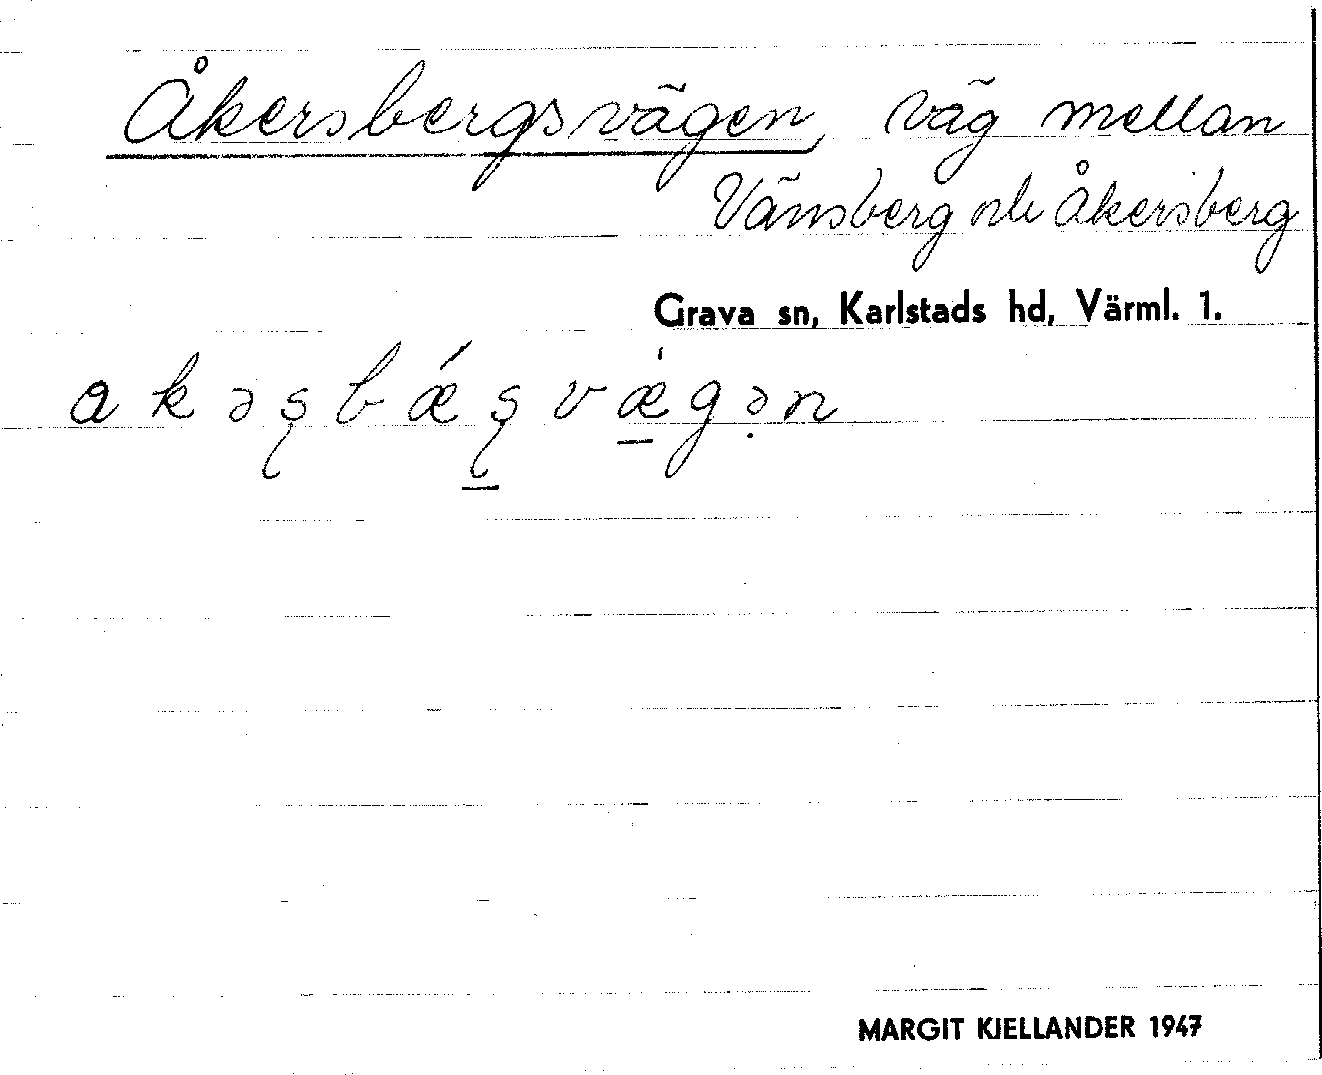 Åkersbergsvägen, väg mellan
Vänsberg och Åkersberg
Grava sn, Karlstads hd, Värml. 1.
a k ə ʂ b ǽ ʂ v æ̀ g ə n
MARGIT KJELLANDER 1947